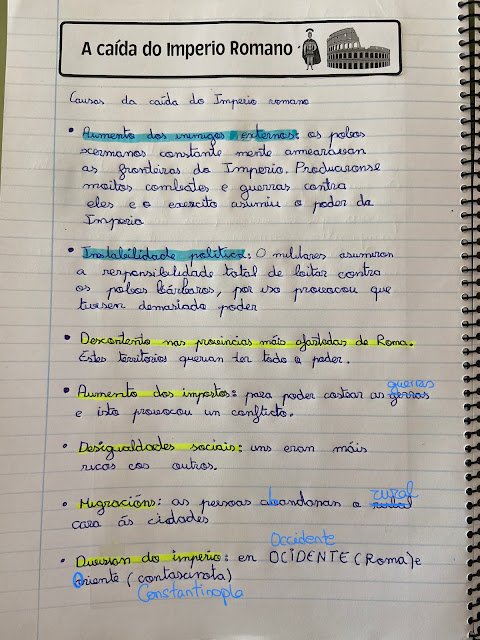 A caída do Imperio Romano
Causas da caída do Imperio romano
• Aumento dos inimigos externos: os pobos
xermanos constante mente amearavan
as fronteiras do Imperio. Producironse
moitos combates e guerras contra
eles e o exercito asumiu o poder da
Imperio
• Instabilidade política: O militares asumiron
a responsibilidade total de loitar contra
os pobos bárbaros, por iso provocou que
tivesen demasiado poder
• Descontento nas provincias máis afastadas de Roma.
Estes territorios querian ter todo o poder.
guerras
• Aumento dos impostos: para poder costear as gerras
e isto provocou un conflicto.
• Desigualdades sociais: uns eran máis
ricos cos outros.
rural
• Migracións: as persoas abandonan o
cara ás cidades
Occidente
• Division do imperio: en OCIDENTE (Roma) e
Oriente (contascinota)
Constantinopla